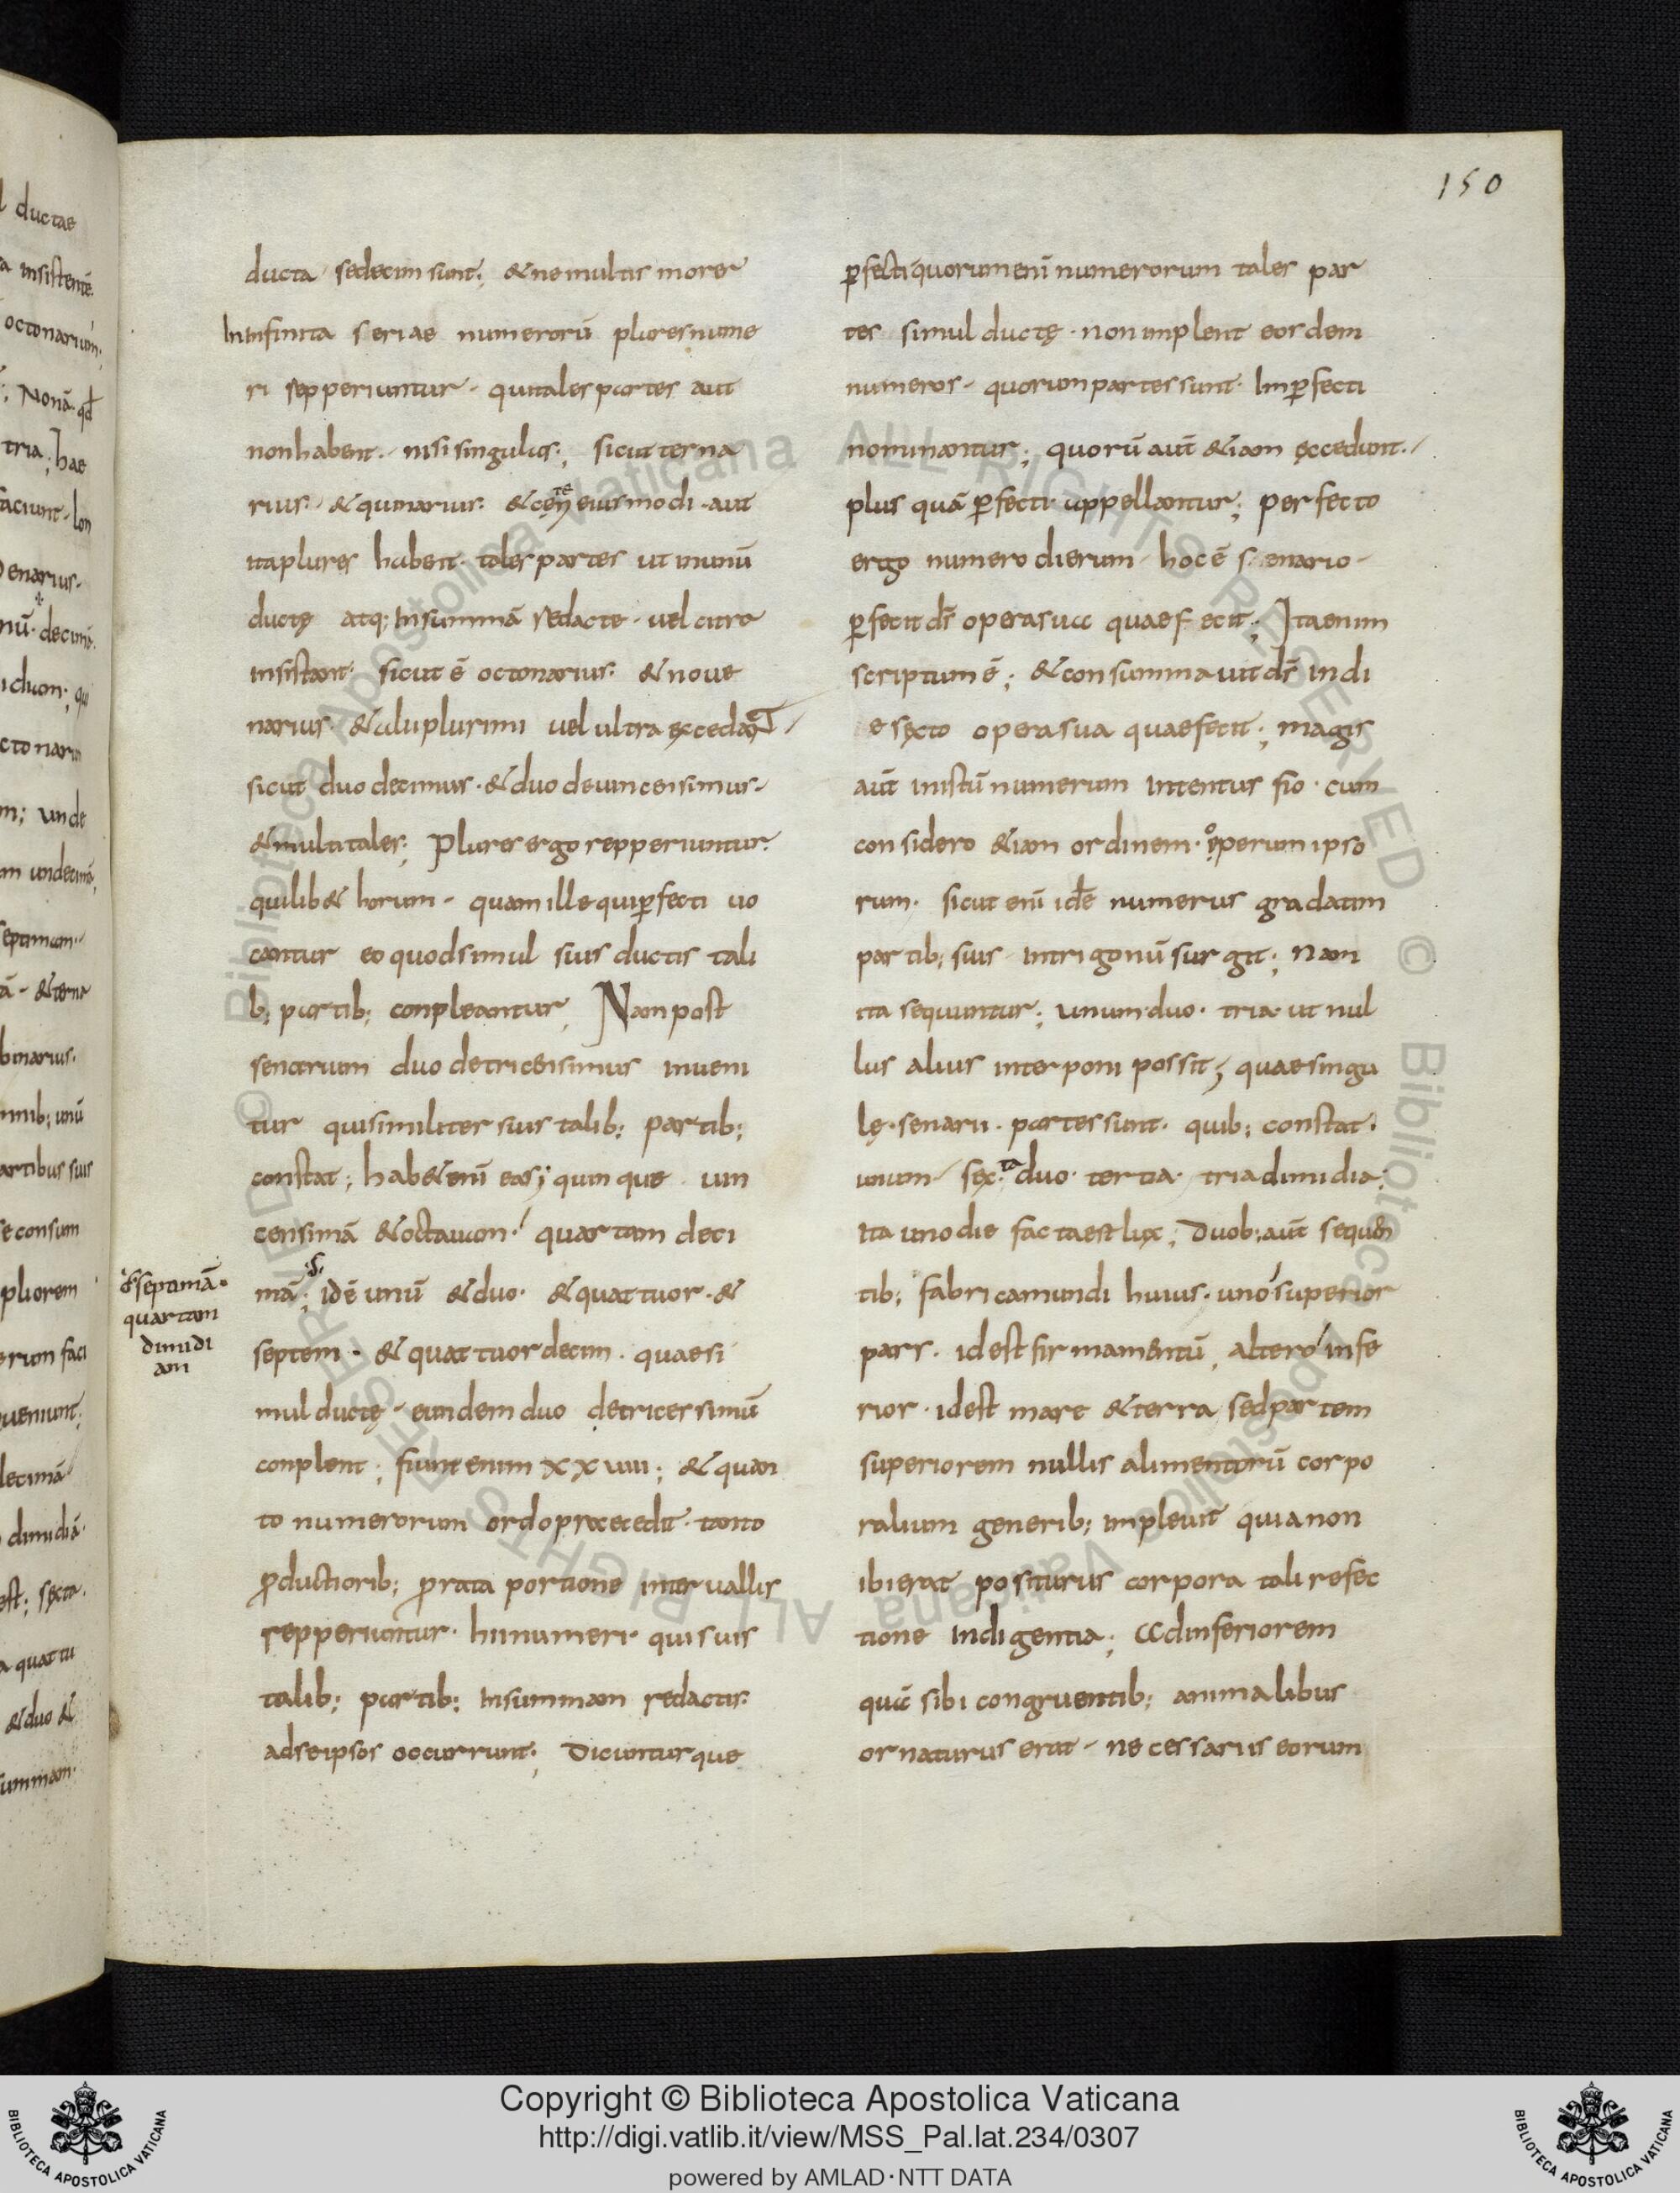 150
ducta sedecim sunt; & ne multis morer
In infinita seriae numerorū plures nume
ri repperiuntur · qui tales partes aut
non habent · nisi singulas; sicut terna
rius · & quinarius · & cęteri eiusmodi · aut
ita plures habent · tales partes ut in unū
ductę atq; in summā redacte · vel citra
insistant · sicut ē octonarius · & noue
narius · & alii plurimi uel ultra excedaNT
sicut duodecimus · & duodeuincensimus ·
& multi tales; Plures ergo repperiuntur ·
quilib& horum · quam ille qui ꝑfecti uo
cantur eo quod simul suis ductis tali
b; partib; conpleantur, Nam post
senarium duodetricensimus inueni
tur qui similiter suis talib; partib;
constat; hab& enī eas; quinque · uin
censimā & octauam · quartam deci
mā; idē unū & duo · & quattuor · &
septimā ·
quartam
dimidi
am
septem · & quattuordecim · quae si
mul ductę · eundem duo detricensimū
conplent; fiunt enim xx uiii; & quan
to numerorum ordo procecedit · tanto
ꝓductiorib; ꝓ rata portione interuallis
repperiuntur · hi numeri · qui suis
talib; partib; in summam redactis ·
ad se ipsos occurrunt; Dicunturque
ꝑfecti quorum enī numerorum tales par
tes simul ductę · non implent eosdem
numeros · quorum partes sunt · Inꝑfecti
nominantur; quorū aut̄ & iam excedunt ·
plus quā ꝑfecti appellantur; perfecto
ergo numero dierum · hoc ē senario ·
ꝑfecit dš opera sua quae fecit; Ita enim
scriptum ē; & consummauit dš in di
e sexto opera sua quae fecit; magis
aut̄ in istū numerum intentus fio · cum
considero & iam ordinem · operum ipso
rum · sicut enī idē numerus gradatim
partib; suis · in trigonū surgit; Nam
ita sequuntur; unum · duo · tria · ut nul
lus alius interponi possit; quae singu
lę · senarii · partes sunt · quib; constat ·
unum · sex·ta duo · tertia · tria dimidia;
ita uno die facta est lux; Duob; aut̄ sequen
tib; fabrica mundi huius · uno superior
pars · id est firmamentū, altero infe
rior · id est mare & terra, sed partem
superiorem nullis alimentorū corpo
ralium generib; impleuit quia non
ibi erat positurus corpora tali refec
tione indigentia; ad inferiorem
quā sibi congruentib; animalibus
ornaturus erat · necessariis eorum
Copyright © Biblioteca Apostolica Vaticana
http://digi.vatlib.it/view/MSS_Pal.lat.234/0307
powered by AMLAD·NTT DATA
BIBLIOTECA APOSTOLICA VATICANA
BIBLIOTECA APOSTOLICA VATICANA
© Biblioteca Apostolica Vaticana ALL RIGHTS RESERVED
© Biblioteca Apostolica Vaticana ALL RIGHTS RESERVED